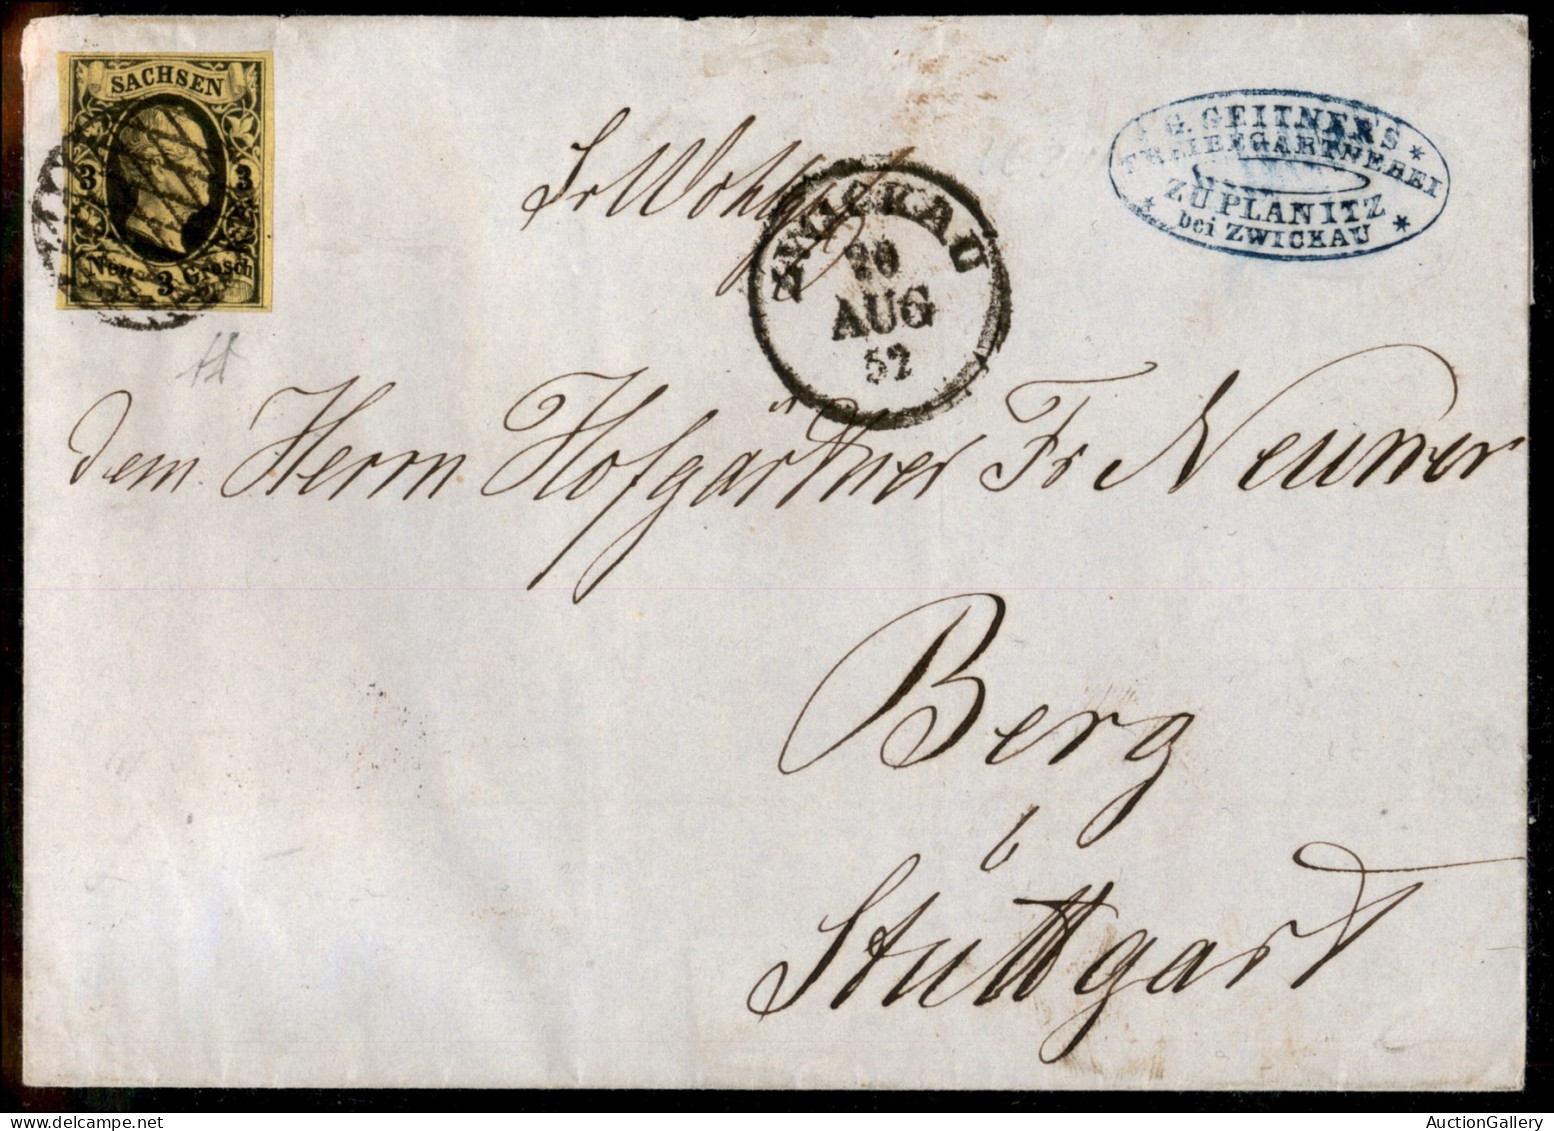 SACHSEN
3 3
Neu- 3 Grosch
Sr Wohlg
ZWICKAU
20
AUG
52
G. GEITNER'S
TREIBEGÄRTNEREI
ZU PLANITZ
bei ZWICKAU
dem Herrn Hofgärtner Fr Neuner
Berg
b
Stuttgart
AuctionGallery